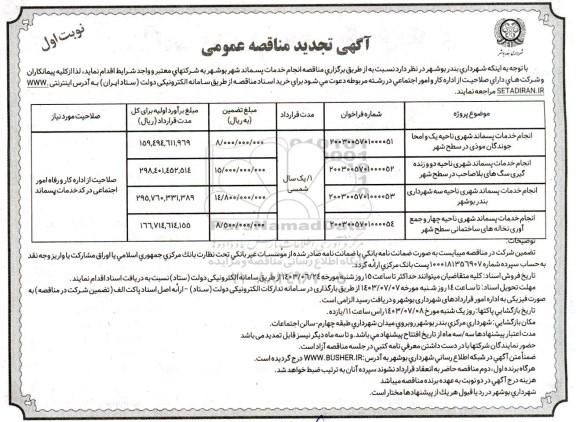 نوبت اول
آگهی تجدید مناقصه عمومی
با توجه به اینکه شهرداری بندر بوشهر در نظر دارد نسبت به از طریق برگزاری مناقصه انجام خدمات پسماند شهر بوشهر به شرکتهای معتبر و واجد شرایط اقدام نماید، لذا از کلیه پیمانکاران
و شرکت های دارای صلاحیت از اداره کار و امور اجتماعی در رشته مربوطه دعوت می شود برای خرید اسناد مناقصه از طریق سامانه الکترونیکی دولت (ستاد ایران) به آدرس اینترنتی WWW.
SETADIRAN.IR مراجعه نمایند.
موضوع پروژه شماره فراخوان مدت قرارداد مبلغ تضمین (به ریال) مبلغ برآورد اولیه برای کل مدت قرارداد (ریال) صلاحیت مورد نیاز
انجام خدمات پسماند شهری ناحیه یک و امحا جوندگان موذی در سطح شهر ۲۰۰۳۰۰۵۷۰۱۰۰۰۰۵۱ ۱/ یک سال شمسی ۸/۰۰۰/۰۰۰/۰۰۰ ۱۵۹,۴۹۴,۶۱۱,۹۶۹ صلاحیت از اداره کار و رفاه امور اجتماعی در کد خدمات پسماند
انجام خدمات پسماند شهری ناحیه دو و زنده گیری سگ های بلاصاحب در سطح شهر ۲۰۰۳۰۰۵۷۰۱۰۰۰۰۵۲ ۱۵/۰۰۰/۰۰۰/۰۰۰ ۲۹۸,۴۰۱,۴۵۲,۵۱۴
انجام خدمات پسماند شهری ناحیه سه شهرداری بندر بوشهر ۲۰۰۳۰۰۵۷۰۱۰۰۰۰۵۳ ۱۴/۸۰۰/۰۰۰/۰۰۰ ۲۹۵,۷۶۰,۳۳۱,۳۸۹
انجام خدمات پسماند شهری ناحیه چهار و جمع آوری نخاله های ساختمانی سطح شهر ۲۰۰۳۰۰۵۷۰۱۰۰۰۰۵۴ ۸/۵۰۰/۰۰۰/۰۰۰ ۱۶۶,۷۱۴,۶۱۴,۱۵۵
توضیحات:
تضمین شرکت در مناقصه میبایست به صورت ضمانت نامه بانکی یا ضمانت نامه صادر شده از موئسسات غیر بانکی تحت نظارت بانک مرکزی جمهوری اسلامی یا اوراق مشارکت یا واریز وجه نقد
به حساب سپرده شماره ۱۰۰۰۸۱۳۵۶۹۰۷ پست بانک مرکزی ارائه گردد.
تاریخ فروش اسناد: کلیه متقاضیان میتوانند حداکثر تا ساعت ۱۵ روز شنبه مورخه ۱۴۰۳/۰۶/۲۴ از طریق سامانه الکترونیکی دولت (ستاد) نسبت به دریافت اسناد اقدام نمایند.
مهلت تحویل اسناد: تا ساعت ۱۴ روز شنبه مورخه ۱۴۰۳/۰۷/۰۷ از طریق بارگذاری در سامانه تدارکات الکترونیکی دولت (ستاد) - ارائه اصل اسناد پاکت الف (تضمین شرکت در مناقصه) به
صورت فیزیکی به اداره امور قراردادهای شهرداری بوشهر و دریافت رسید الزامی است.
تاریخ بازگشایی پاکتها: روز یک شنبه مورخ ۱۴۰۳/۰۷/۰۸ راس ساعت ۱۱/ یازده.
مکان بازگشایی: شهرداری مرکزی بندر بوشهر روبروی میدان شهرداری طبقه چهارم-سالن اجتماعات.
مدت اعتبار پیشنهادها سه/ سه ماه از تاریخ افتتاح پیشنهاد می باشد. و تا سه ماه دیگر نیز قابل تمدید می باشد
حضور نمایندگان شرکتها با در دست داشتن معرفی نامه کتبی در جلسه مناقصه آزاد است.
ضمناً متن آگهی در شبکه اطلاع رسانی شهرداری بوشهر به آدرس: WWW.BUSHER.IR درج گردیده است.
هرگاه برنده اول، دوم مناقصه حاضر به انعقاد قرارداد نشوند سپرده آنان به ترتیب ضبط خواهد شد.
هزینه درج آگهی در دو نوبت به عهده برنده مناقصه میباشد
شهرداری بوشهر در رد یا قبول هر یک از پیشنهادها مختار است.